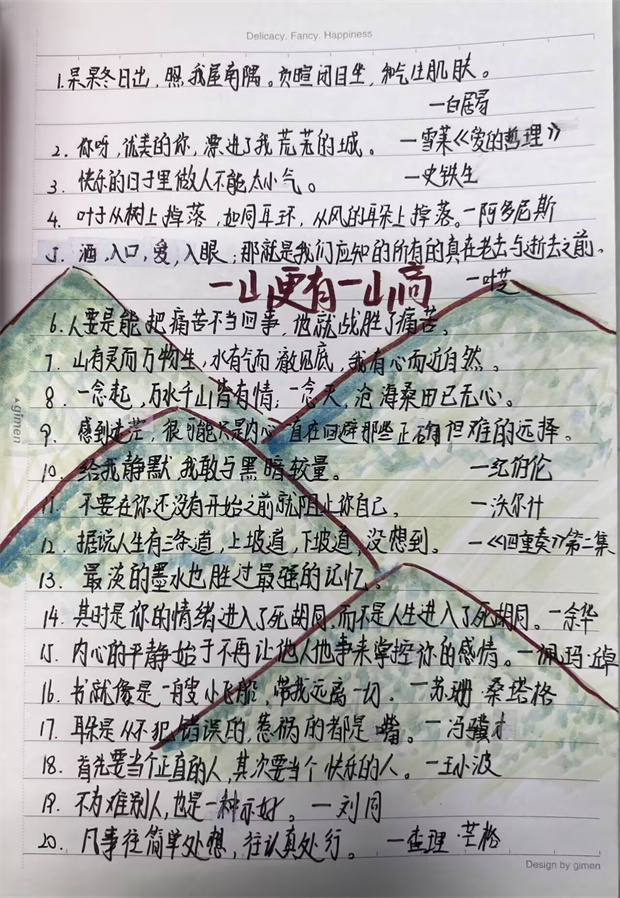 Delicacy. Fancy. Happiness
1.杲杲冬日出，照我屋南隅。负暄闭目坐，和气住肌肤。
—白居易
2. 你呀，优美的你，漂进了我荒芜的城。 —雪莱《爱的哲理》
3. 快乐的日子里做人不能太小气。 —史铁生
4. 叶子从树上掉落，如同耳环，从风的耳朵上掉落。—阿多尼斯
5. 酒，入口，爱，入眼；那就是我们应知的所有的真在老去与逝去之前。
—叶芝
一山更有一山高
6. 人要是能把痛苦不当回事，他就战胜了痛苦。
7. 山有灵而万物生，水有气而澈见底，我有心而近自然。
8. 一念起，万水千山皆有情；一念灭，沧海桑田已无心。
9. 感到迷茫，很可能只是内心一直在回避那些正确但难的选择。
10. 给我静默，我敢与黑暗较量。 —纪伯伦
11. 不要在你还没有开始之前就阻止你自己。 —沃尔什
12. 据说人生有三条道，上坡道，下坡道，没想到。 —《四重奏》第二集
13. 最淡的墨水也胜过最强的记忆。
14. 其时是你的情绪进入了死胡同，而不是人生进入了死胡同。—余华
15. 内心的平静始于不再让他人他事来掌控你的感情。—佩玛·丘卓
16. 书就像是一艘小飞船，带我远离一切。—苏珊·桑塔格
17. 耳朵是从不犯错误的，惹祸的都是嘴。—冯骥才
18. 首先要当个正直的人，其次要当个快乐的人。—王小波
19. 不为难别人，也是一种示好。—刘同
20. 凡事往简单处想，往认真处行。 —查理·芒格
gimen
Design by gimen